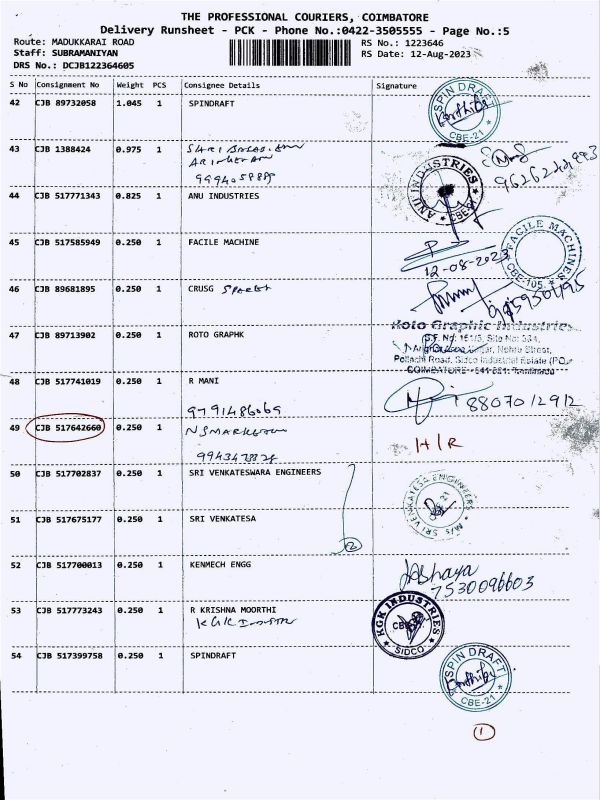 THE PROFESSIONAL COURIERS, COIMBATORE
Delivery Runsheet - PCK - Phone No.:0422-3505555 - Page No.:5
Route: MADUKKARAI ROAD RS No.: 1223646
Staff: SUBRAMANIYAN RS Date: 12-Aug-2023
DRS No.: DCJB122364605
S No Consignment No Weight PCS Consignee Details Signature
42 CJB 89732058 1.045 1 SPINDRAFT
SPIN DRAFT
CBE-21
43 CJB 1388424 0.975 1
44 CJB 517771343 0.825 1 ANU INDUSTRIES
ANU INDUSTRIES
45 CJB 517585949 0.250 1 FACILE MACHINE
12-08-2023
FACILE MACHINES
CBE-105
46 CJB 89681895 0.250 1 CRUSG
47 CJB 89713902 0.250 1 ROTO GRAPHK
Roto Graphic Industries
48 CJB 517741019 0.250 1 R MANI
9791486069
8807012912
49 CJB 517642660 0.250 1
H/R
50 CJB 517702837 0.250 1 SRI VENKATESWARA ENGINEERS
M/s SRI VENKATESA ENGINEERS
51 CJB 517675177 0.250 1 SRI VENKATESA
2
52 CJB 517700013 0.250 1 KENMECH ENGG
7530096603
53 CJB 517773243 0.250 1 R KRISHNA MOORTHI
KGK INDUSTRIES
SIDCO
54 CJB 517399758 0.250 1 SPINDRAFT
SPIN DRAFT
CBE-21
1